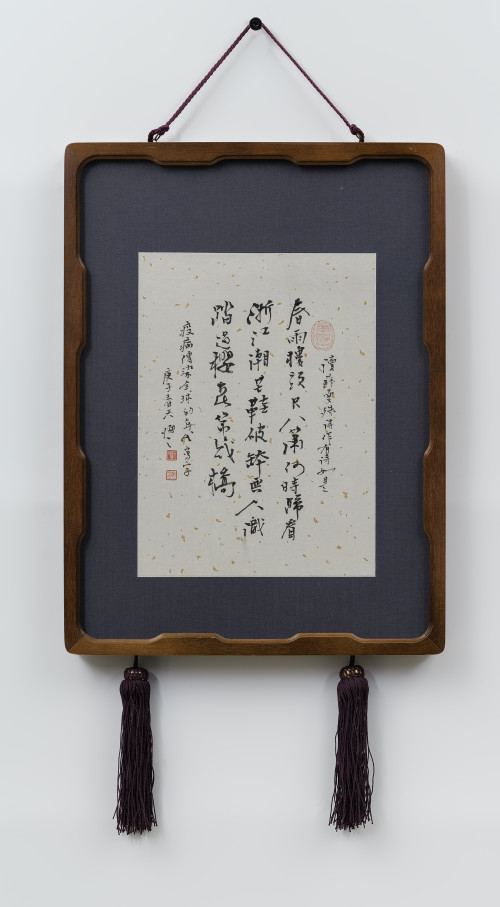 讀蘇曼殊詩作有詩如是之
春雨樓頭尺八簫何時歸看
浙江潮芒鞋破鉢無人識
踏過櫻花第幾橋
疫病傳染全球的年代寫字
庚子春天